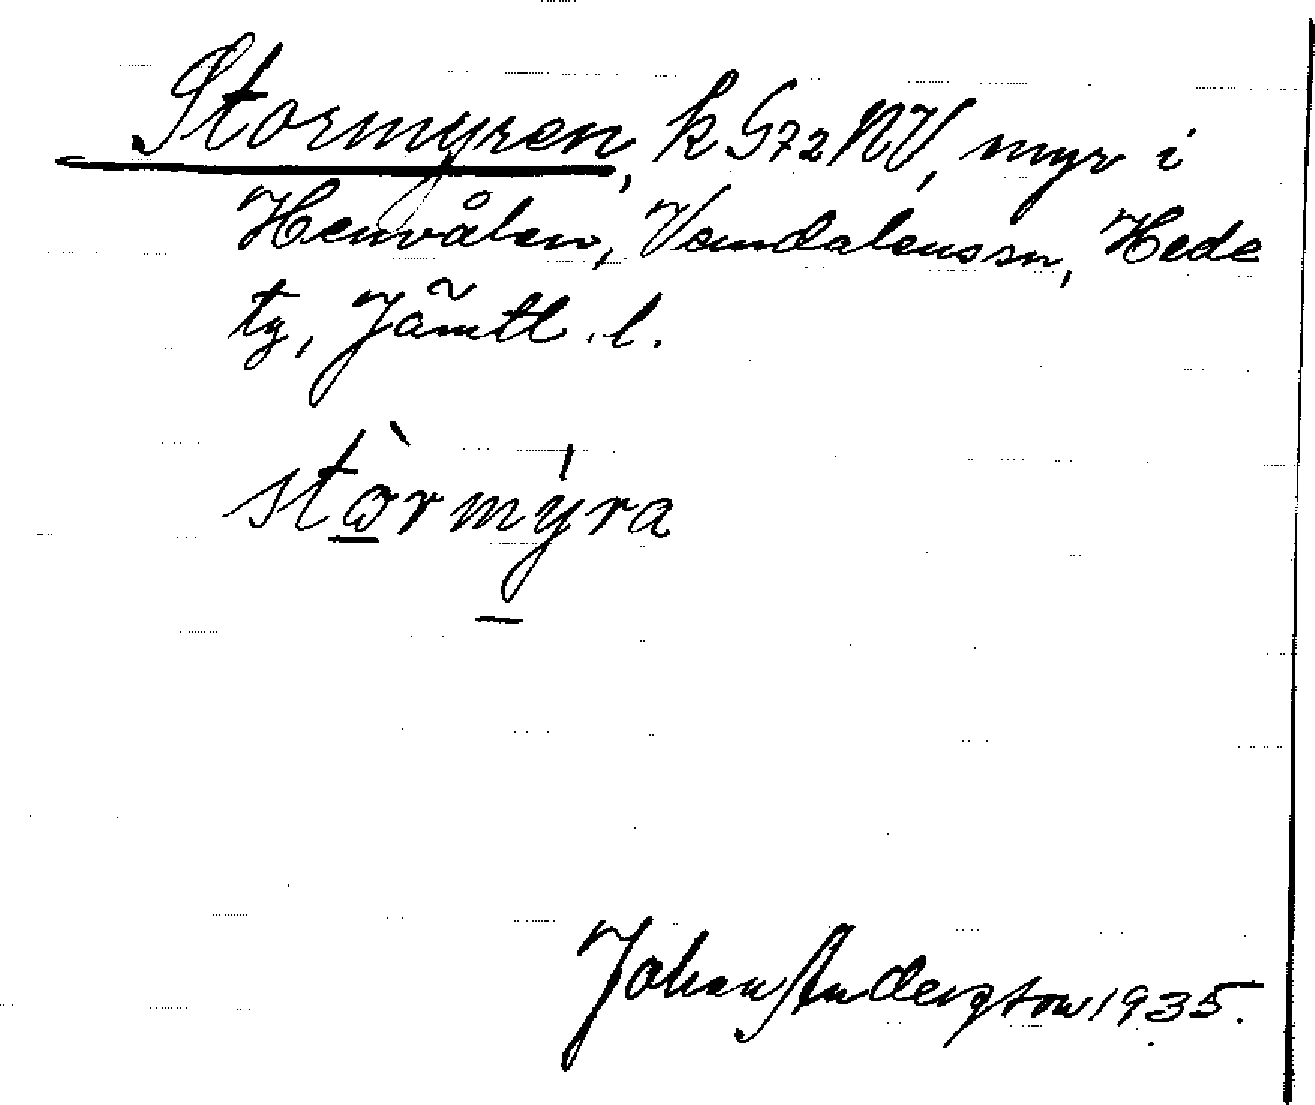 Stormyren, k G72NV, myr i
Henvålen, Vemdalenssn, Hede
tg, Jämtl. l.
stòrmýra
Johan Andersson 1935.